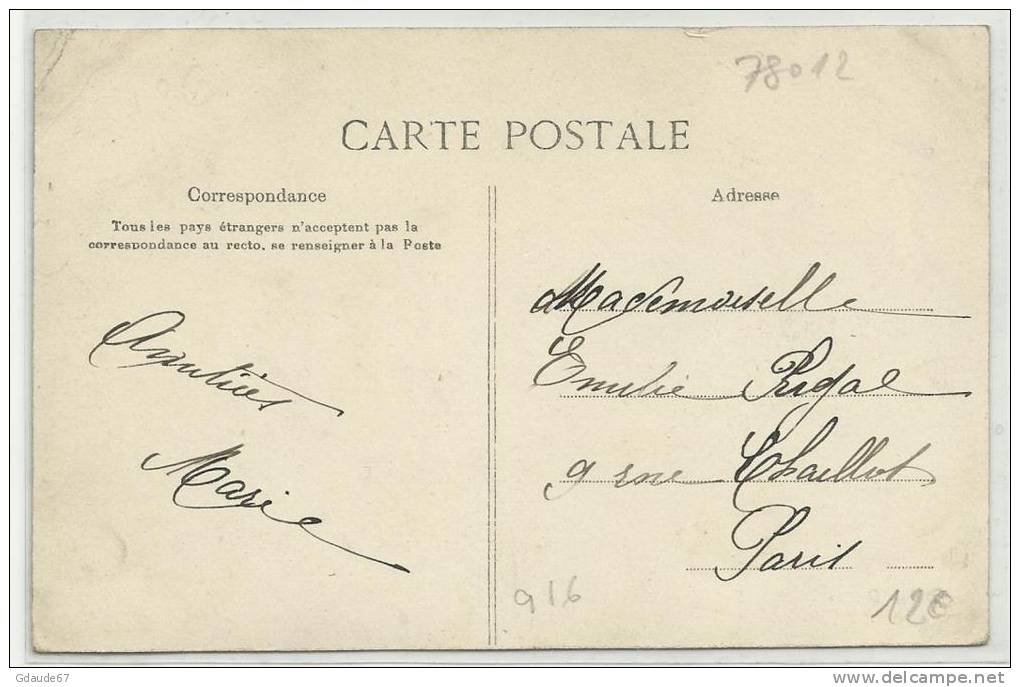 78012
CARTE POSTALE
Correspondance
Tous les pays étrangers n'acceptent pas la
correspondance au recto, se renseigner à la Poste
Amitiés
Marie
Adresse
Mademoiselle
Emilie Rigal
9 rue Chaillot
Paris
916
12€
Gdaude67
www.delcampe.net